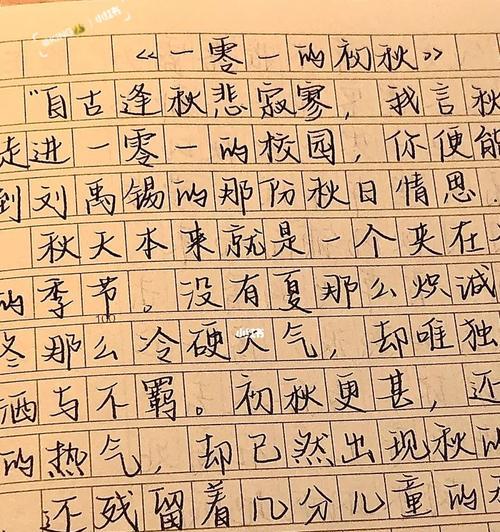 小红书
《一零一的初秋》
"自古逢秋悲寂寥，我言秋
走进一零一的校园，你便能
到刘禹锡的那份秋日情思
秋天本来就是一个夹在
的季节。没有夏那么炽诚
100
冬那么冷硬大气，却唯独
小红书
洒与不羁。初秋更甚，还
的热气，却已然出现秋的
还残留着几分儿童的